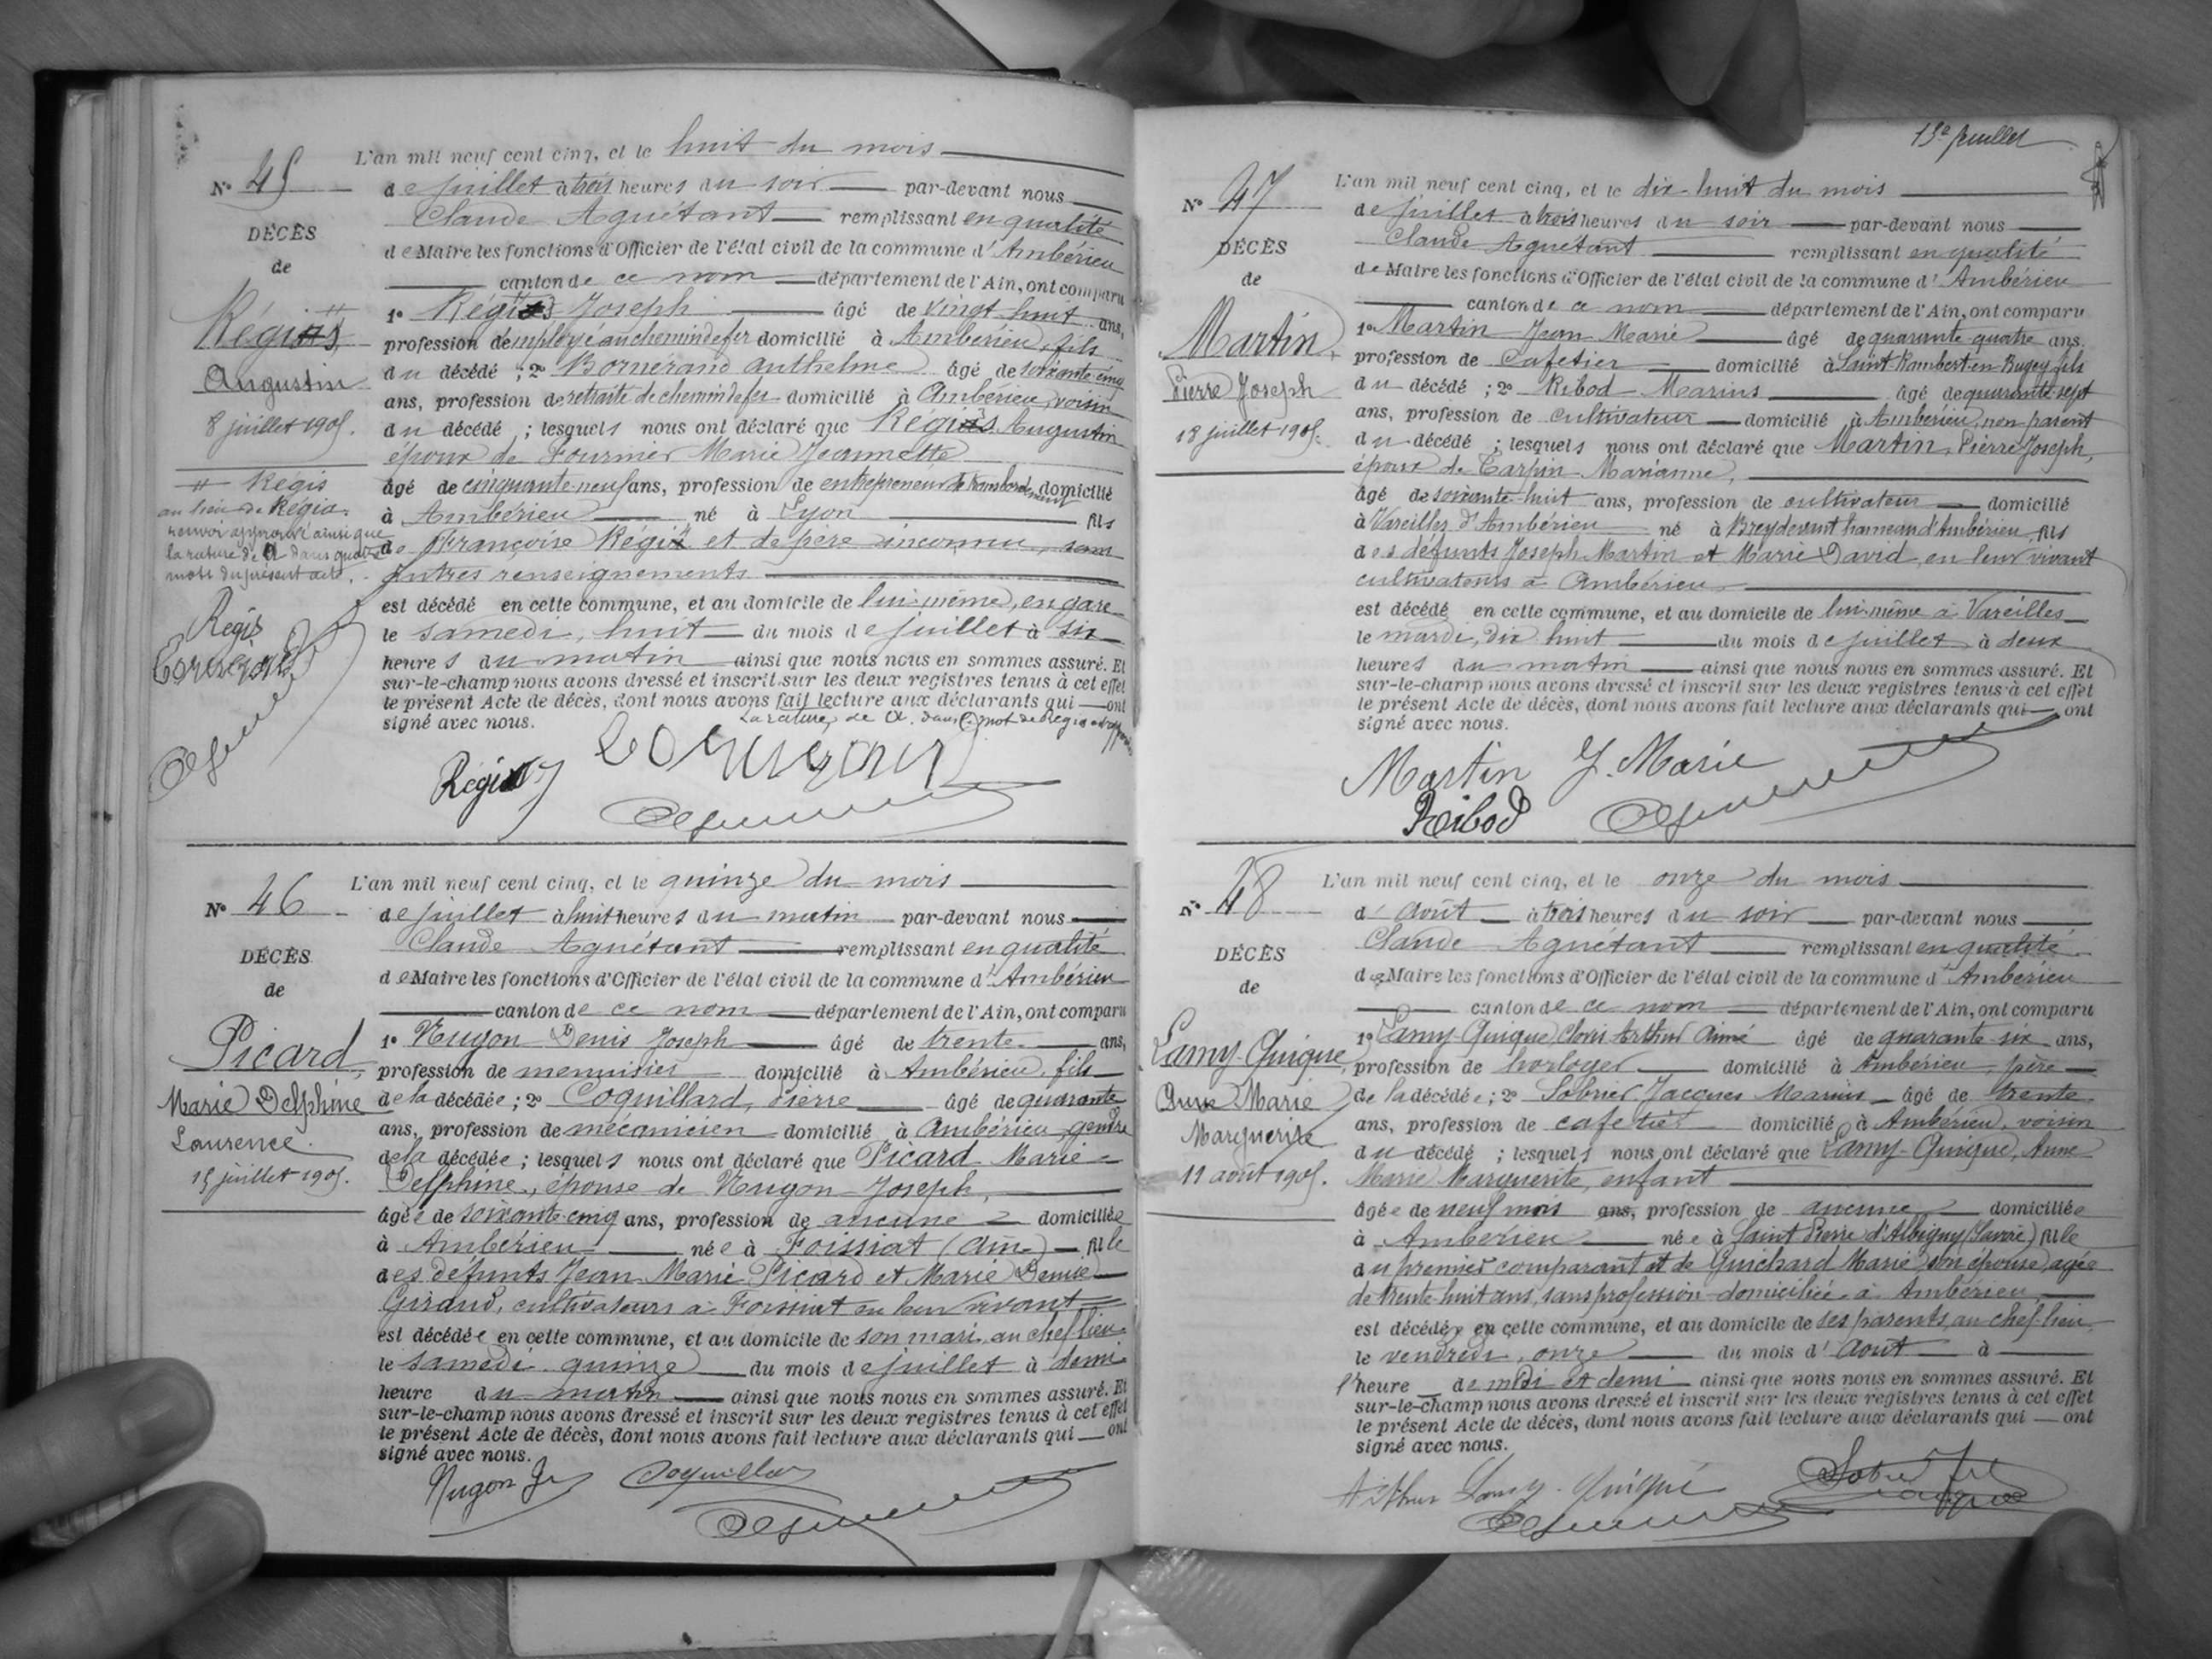 N° 45
DÉCÈS
de
Régis
Augustin
8 juillet 1905.
# Régis
au lieu de Régia.
renvoi approuvé ainsi que
la rature d'a dans quatre
mots du présent acte.
Régis
L'an mil neuf cent cinq, et le huit du mois
de juillet à trois heures du soir par-devant nous
Claude Aguétant remplissant en qualité
de Maire les fonctions d'Officier de l'état civil de la commune d'Ambérieu
canton de ce nom département de l'Ain, ont comparu
1° Régis Joseph âgé de vingt huit ans,
profession d'employé au chemin de fer domicilié à Ambérieu, fils
du décédé ; 2° Bornérand Anthelme âgé de soixante cinq
ans, profession de retraité de chemin de fer domicilié à Ambérieu, voisin
du décédé ; lesquels nous ont déclaré que Régis Augustin
époux de Fournier Marie Jeannette
âgé de cinquante-neuf ans, profession de entrepreneur de transbordement domicilié
à Ambérieu né à Lyon fils
de Françoise Régis et de père inconnu, sans
autres renseignements
est décédé en cette commune, et au domicile de lui-même, en gare
le samedi, huit du mois de juillet à six
heures du matin ainsi que nous nous en sommes assuré. Et
sur-le-champ nous avons dressé et inscrit sur les deux registres tenus à cet effet
le présent Acte de décès, dont nous avons fait lecture aux déclarants qui ont
signé avec nous. La rature de a dans mot de Régia
Régis
N° 46
DÉCÈS
de
Picard,
Marie Delphine
Laurence.
15 juillet 1905.
L'an mil neuf cent cinq, et le quinze du mois
de juillet à huit heures du matin par-devant nous
Claude Aguétant remplissant en qualité
de Maire les fonctions d'Officier de l'état civil de la commune d'Ambérieu
canton de ce nom département de l'Ain, ont comparu
1° Nugon Denis Joseph âgé de trente ans,
profession de menuisier domicilié à Ambérieu, fils
de la décédée ; 2° Coquillard, Pierre âgé de quarante
ans, profession de mécanicien domicilié à Ambérieu, gendre
de la décédée ; lesquels nous ont déclaré que Picard Marie
Delphine, épouse de Nugon Joseph,
âgée de soixante-cinq ans, profession de aucune domiciliée
à Ambérieu née à Foissiat (Ain) fille
des défunts Jean Marie Picard et Marie Denise
Giraud, cultivateurs à Foissiat en leur vivant
est décédée en cette commune, et au domicile de son mari, au chef lieu
le samedi quinze du mois de juillet à demi
heure du matin ainsi que nous nous en sommes assuré. Et
sur-le-champ nous avons dressé et inscrit sur les deux registres tenus à cet effet
le présent Acte de décès, dont nous avons fait lecture aux déclarants qui ont
signé avec nous.
Nugon Coquillard
15e juillet
N° 47
DÉCÈS
de
Martin,
Pierre Joseph
18 juillet 1905.
L'an mil neuf cent cinq, et le dix-huit du mois
de juillet à trois heures du soir par-devant nous
Claude Aguétant remplissant en qualité
de Maire les fonctions d'Officier de l'état civil de la commune d'Ambérieu
canton de ce nom département de l'Ain, ont comparu
1° Martin Jean Marie âgé de quarante quatre ans.
profession de cafetier domicilié à Saint Rambert-en-Bugey, fils
du décédé ; 2° Ribod Marius âgé de quarante-sept
ans, profession de cultivateur domicilié à Ambérieu, non parent
du décédé ; lesquels nous ont déclaré que Martin, Pierre Joseph,
époux de Carpin Marianne,
âgé de soixante-huit ans, profession de cultivateur domicilié
à Vareilles d'Ambérieu né à Breydevent hameau d'Ambérieu, fils
des défunts Joseph Martin et Marie David, en leur vivant
cultivateurs à Ambérieu
est décédé en cette commune, et au domicile de lui-même à Vareilles
le mardi, dix huit du mois de juillet à deux
heures du matin ainsi que nous nous en sommes assuré. Et
sur-le-champ nous avons dressé et inscrit sur les deux registres tenus à cet effet
le présent Acte de décès, dont nous avons fait lecture aux déclarants qui ont
signé avec nous.
Martin J. Marie
Ribod
N° 48
DÉCÈS
de
Lamy-Quique,
Anne Marie
Marguerite
11 août 1905.
L'an mil neuf cent cinq, et le onze du mois
d'août à trois heures du soir par-devant nous
Claude Aguétant remplissant en qualité
de Maire les fonctions d'Officier de l'état civil de la commune d'Ambérieu
canton de ce nom département de l'Ain, ont comparu
1° Lamy-Quique Clovis Arthur Aimé âgé de quarante six ans,
profession de horloger domicilié à Ambérieu, père
de la décédée ; 2° Sobrier Jacques Marius âgé de trente
ans, profession de cafetier domicilié à Ambérieu, voisin
du décédé ; lesquels nous ont déclaré que Lamy-Quique, Anne
Marie Marguerite, enfant
âgée de neuf mois ans, profession de aucune domiciliée
à Ambérieu née à Saint Pierre d'Albigny (Savoie) fille
du premier comparant et de Guichard Marie son épouse, agée
de trente-huit ans, sans profession domiciliée à Ambérieu,
est décédée en cette commune, et au domicile de ses parents, au chef-lieu
le vendredi, onze du mois d'août à
l'heure de midi et demi ainsi que nous nous en sommes assuré. Et
sur-le-champ nous avons dressé et inscrit sur les deux registres tenus à cet effet
le présent Acte de décès, dont nous avons fait lecture aux déclarants qui ont
signé avec nous.
Arthur Lamy-Quique